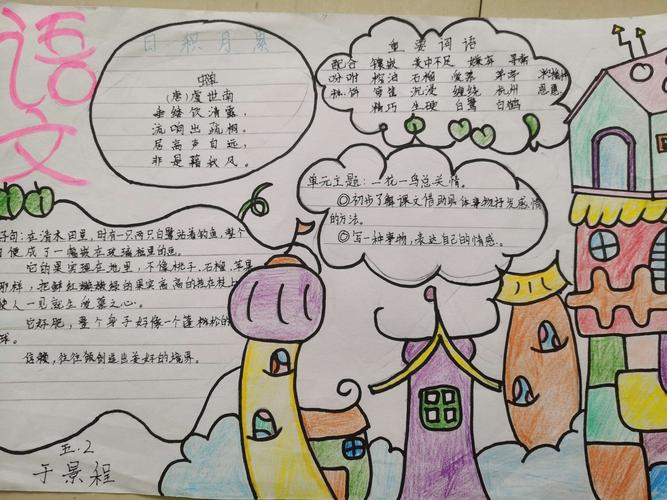 语文
日积月累
蝉
(唐)虞世南
垂緌饮清露,
流响出疏桐。
居高声自远,
非是藉秋风。
重要词语
配合 镶嵌 美中不足 嫌弃 寻常
吩咐 榨油 石榴 爱慕 茅亭
糕饼 寄宿 沉浸 缠绕 杭州 恩惠
精巧 生硬 白鹭 白鹤
单元主题:一花一鸟总关情。
◎初步了解课文借助具体事物抒发感情
的方法。
◎写一种事物,表达自己的情感。
好句:在清水田里,时有一只两只白鹭站着钓鱼,整个
便成了一幅嵌在玻璃框里的画。
它的果实埋在地里,不像桃子、石榴、苹果
那样,把鲜红嫩绿的果实高高的挂在枝上
使人一见就生爱慕之心。
它好肥,整个身子好像一个蓬松的
球。
信赖,往往能创造出美好的境界。
五.2
于景程